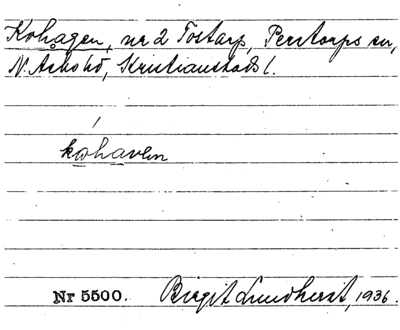 Kohagen, nr 2 Tostarp, Perstorps sn,
N. Åsbo hd, Kristianstads l.
kohaven
Nr 5500. Birgit Lundkvist, 1936.